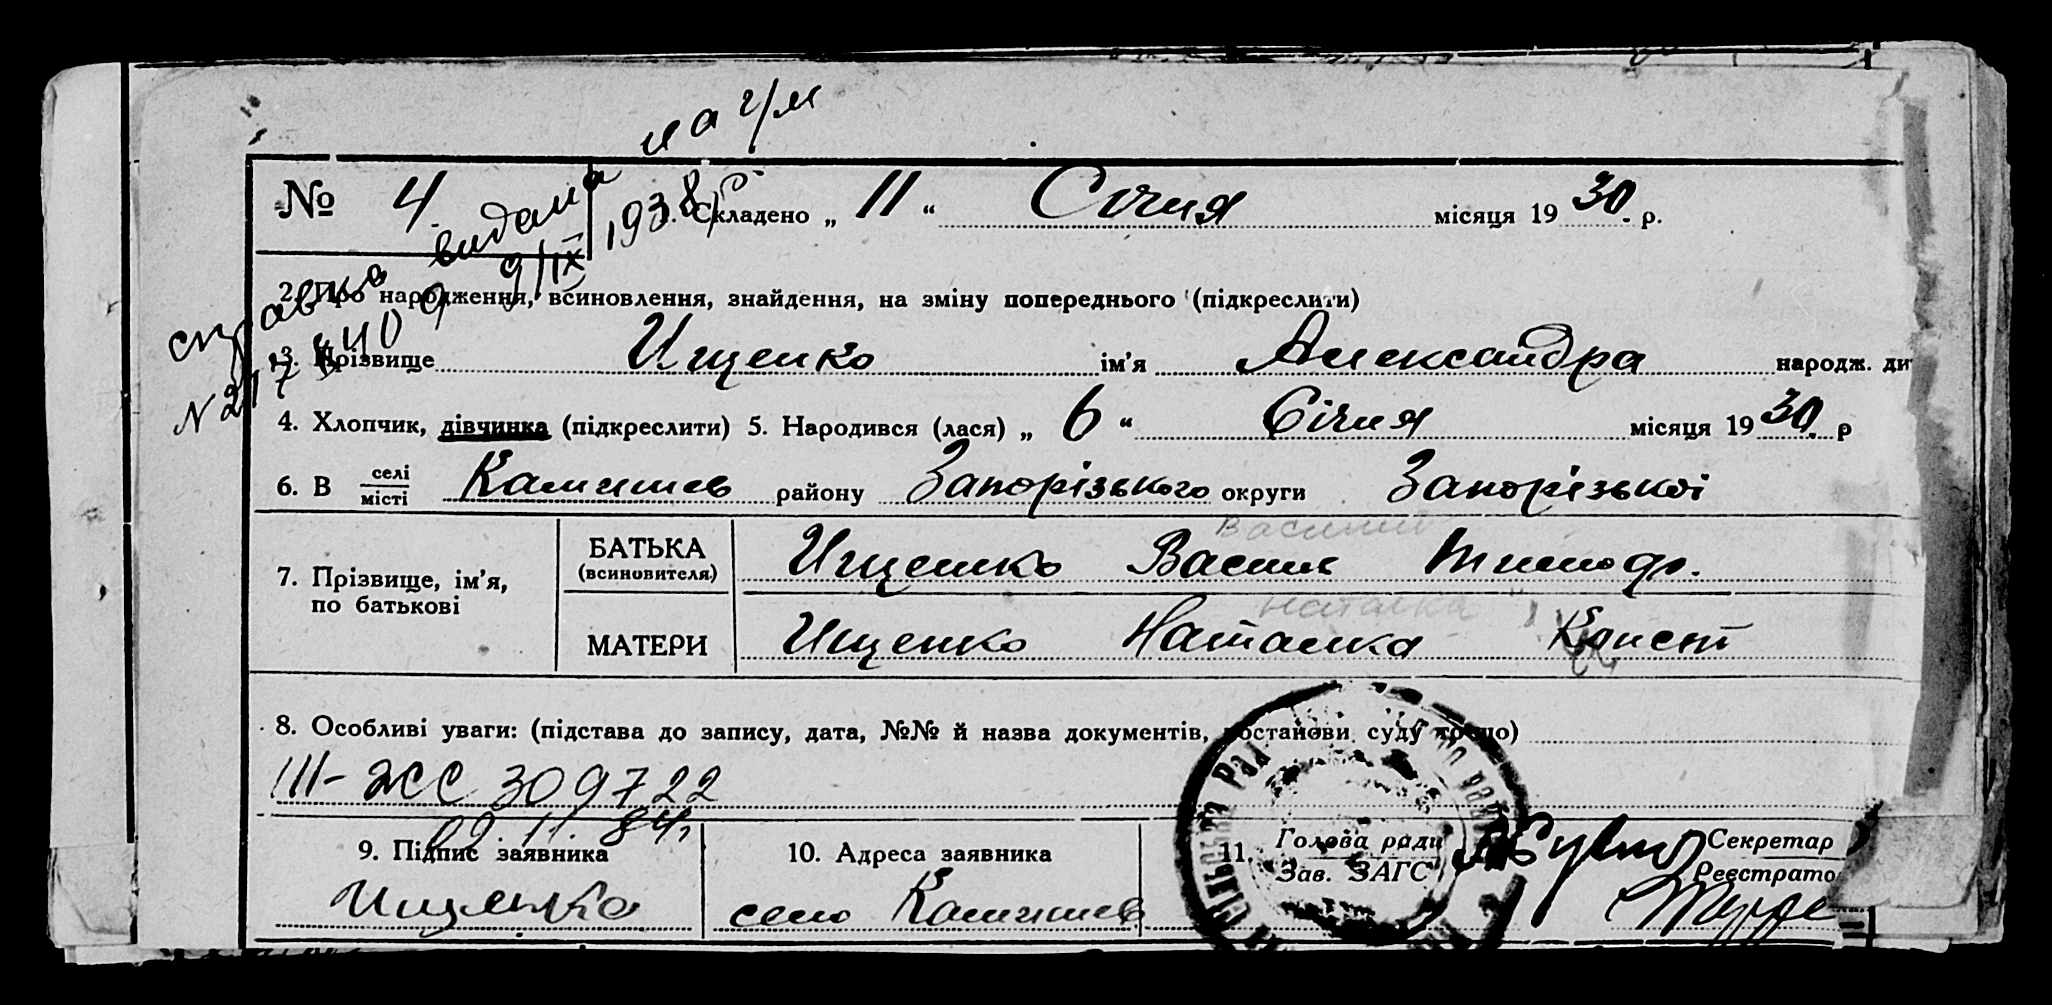 на г/м
№ 4. 1. Складено „ 11 “ Січня місяця 19 30. р.
справка видана 9/IX 1938 р.
2. Про народження, всиновлення, знайдення, на зміну попереднього (підкреслити)
3. Прізвище Ищенко ім’я Александра народж. ди
4. Хлопчик, дівчинка (підкреслити) 5. Народився (лася) „ 6 “ Січня місяця 19 30. р
6. В селі місті Камишев району Запорізького округи Запорізької
Василий
7. Прізвище, ім’я, по батькові БАТЬКА (всиновителя) Ищенко Васил Тимоф.
Наталка
МАТЕРИ Ищенко Наталка Конст
8. Особливі уваги: (підстава до запису, дата, №№ й назва документів, постанови суду тощо)
III-ЖС 309722
22.11.84г.
9. Підпис заявника 10. Адреса заявника 11. Голова ради Зав. ЗАГС Секретар Реєстрато
Ищенко село Камишев